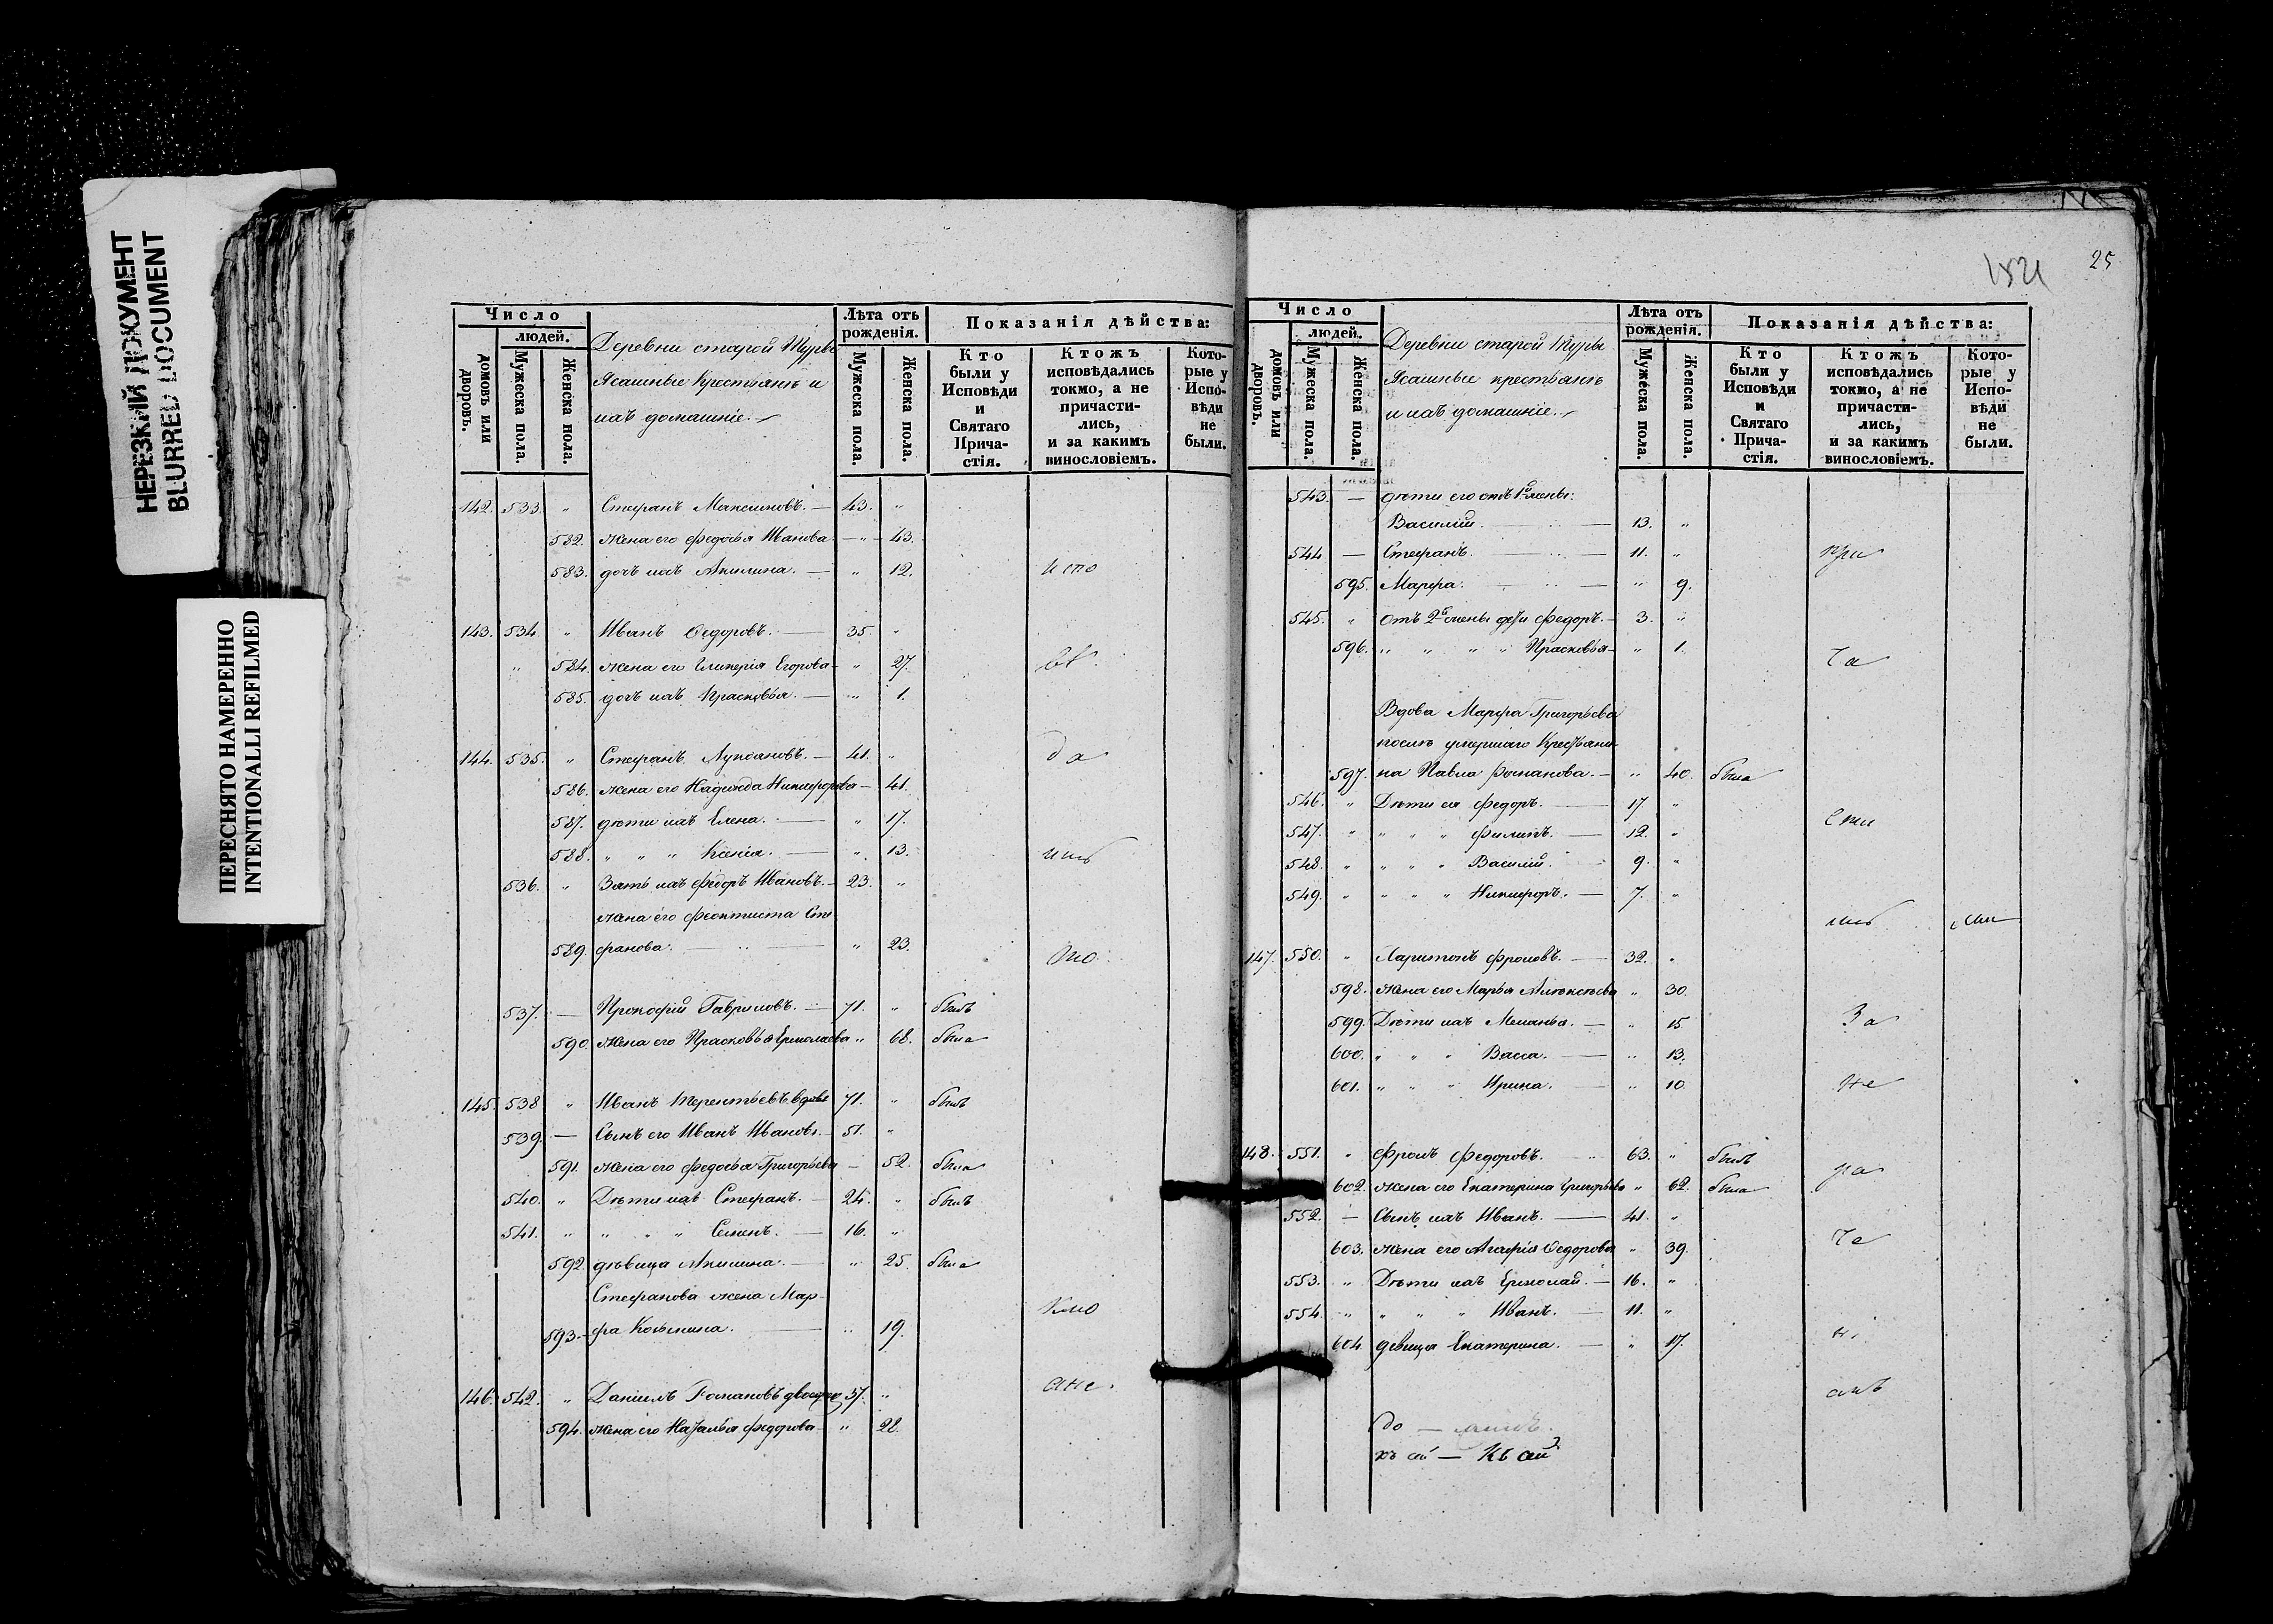 НЕРЕЗКИЙ ДОКУМЕНТ
BLURRED DOCUMENT
ПЕРЕСНЯТО НАМЕРЕННО
INTENTIONALLI REFILMED
Число
людей.
домовъ или дворовъ.
Мужеска пола.
Женска пола.
Деревни старой Журы
Ясашные крестьянъ и
ихъ домашніе.
Лѣта отъ рожденія.
Мужеска пола.
Женска пола.
Показанія дѣйства:
Кто были у Исповѣди и Святаго Прича-стія.
Ктожъ исповѣдались токмо, а не причасти-лись, и за какимъ винословіемъ.
Кото-рые у Испо-вѣди не были.
142. 533. " Стефанъ Максимовъ. — 43. "
582. жена его Федосья Иванова — " — 43.
583. дочь ихъ Акилина. — " 12. испо
143. 534. " Иванъ Ѳедоровъ. — 35. "
" 584. жена его Гликерія Егорова — " 27. вѣ
585. дочь ихъ Прасковья. — " 1.
144. 535. " Стефанъ Лукьяновъ. — 41. " да
586. жена его Надежда Никифорова — 41.
587. дѣти ихъ Елена. — " 17.
588. " " " Ксенія. — " 13. лись
536. " Зять ихъ Федоръ Ивановъ. — 23. "
жена его Феоктиста Сте
589. фанова. — " 23. то
537. — Прокофій Гавриловъ. — 71. " былъ
590. жена его Прасковья Ермолаева " 68. была
145. 538 " Иванъ Терентьевъ вдовъ 71. " былъ
539. — Сынъ его Иванъ Ивановъ. — 51. "
591. жена его Федосья Григорьева — 52. была
540. " Дѣти ихъ Стефанъ. — 24. " былъ
541. " " " " Семенъ. — 16. "
592. дѣвица Акилина. — " 25. была
Стефанова жена Мар-
593. — фа Козьмина. — " 19. кмо
146. 542. " Даніилъ Романовъ 37. " ане.
594. жена его Наталья Федорова — " 28.
1821
25
Число
людей.
домовъ или дворовъ.
Мужеска пола.
Женска пола.
Деревни старой Журы
Ясашные крестьянъ
и ихъ домашніе.
Лѣта отъ рожденія.
Мужеска пола.
Женска пола.
Показанія дѣйства:
Кто были у Исповѣди и Святаго Прича-стія.
Ктожъ исповѣдались токмо, а не причасти-лись, и за какимъ винословіемъ.
Кото-рые у Испо-вѣди не были.
543. — дѣти его отъ 1й жены:
Василій. — 13. "
544 — Стефанъ. — 11. " при
595. Марфа. — " 9.
545. " Отъ 2й жены дѣти Федоръ. — 3. "
596. " " " " Прасковья — " 1. ча
Вдова Марфа Григорьева
послѣ умершаго Крестьяни-
597. на Павла Романова. — " 40. была
546. " Дѣти ея Федоръ. — 17 " сти
547. " " " " Филипъ. — 12. "
548. " " " " Василій. — 9. "
549. " " " " Никифоръ. — 7. "
лись
147. 550. " Харитонъ Фроловъ. — 32. "
598. жена его Марья Алексѣева " 30.
599. Дѣти ихъ Меланья. — " 15 За
600. " " " Васса. — " 13.
601. " " " Ирина. — " 10 не
148. 551. " Фролъ Федоровъ. — 63. " былъ
602. жена его Екатерина Григорьева " 62. была
552. — Сынъ ихъ Иванъ. — 41. "
603. жена его Агафія Ѳедорова " 39.
553. " Дѣти ихъ Ермолай. — 16. "
554. " " " " Иванъ. — 11. "
604 дѣвица Екатерина. — " 17.